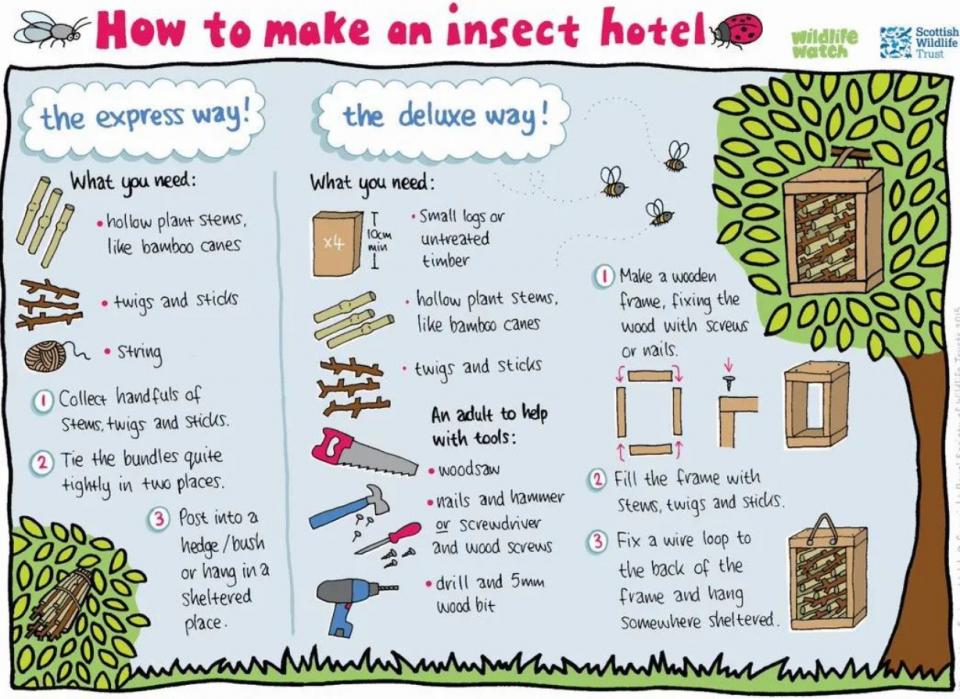 How to make an insect hotel
wildlife
watch
Scottish
Wildlife
Trust
the express way!
What you need:
• hollow plant stems,
like bamboo canes
• twigs and sticks
• string
1 Collect handfuls of
stems, twigs and sticks.
2 Tie the bundles quite
tightly in two places.
3 Post into a
hedge/bush
or hang in a
sheltered
place.
the deluxe way!
What you need:
x4
10cm
min
• Small logs or
untreated
timber
• hollow plant stems,
like bamboo canes
• twigs and sticks
An adult to help
with tools:
• woodsaw
• nails and hammer
or screwdriver
and wood screws
• drill and 5mm
wood bit
1 Make a wooden
frame, fixing the
wood with screws
or nails.
2 Fill the frame with
stems, twigs and sticks.
3 Fix a wire loop to
the back of the
frame and hang
somewhere sheltered.